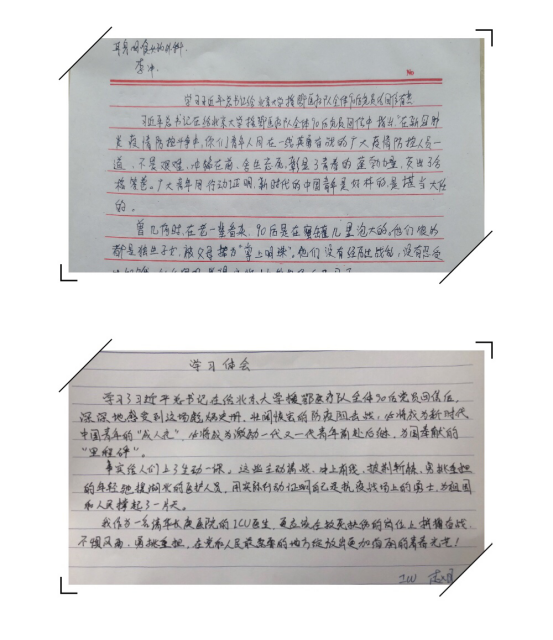 耳鼻咽喉
李
No
学习习近平总书记给北京大学援鄂医疗队全体90后党员的回信有感
习近平总书记在给北京大学援鄂医疗队全体90后党员回信中指出“在新冠肺
炎疫情防控斗争中，你们青年人同在一线英勇奋战的广大疫情防控人员一
道，不畏艰险、冲锋在前、舍生忘死，彰显了青春的蓬勃力量，交出了合
格答卷。广大青年用行动证明，新时代的中国青年是好样的，是堪当大任
的。
曾几何时，在老一辈看来，90后是在蜜罐儿里泡大的。他们
都是独生子女，被父母誉为“掌上明珠”。他们没有经历过战
学习体会
学习了习近平总书记在给北京大学援鄂医疗队全体90后党员回信后，
深深地感受到这场彪炳史册、壮阔恢宏的防疫阻击战，必将成为新时代
中国青年的“成人礼”，必将成为激励一代又一代青年前赴后继、为国奉献的
“里程碑”。
事实给人们上了生动一课，这些主动请战、冲上前线、披荆斩棘、勇挑重担
的年轻抱援鄂的医护人员，用实际行动证明自己是抗疫战场上的勇士，为祖国
和人民撑起了一片天。
我作为一名清华长庚医院的ICU医生，更应该在救死扶伤的岗位上拼搏奋战，
不惧风雨，勇挑重担，在党和人民最需要的地方绽放出更加绚丽的青春光芒！
ICU